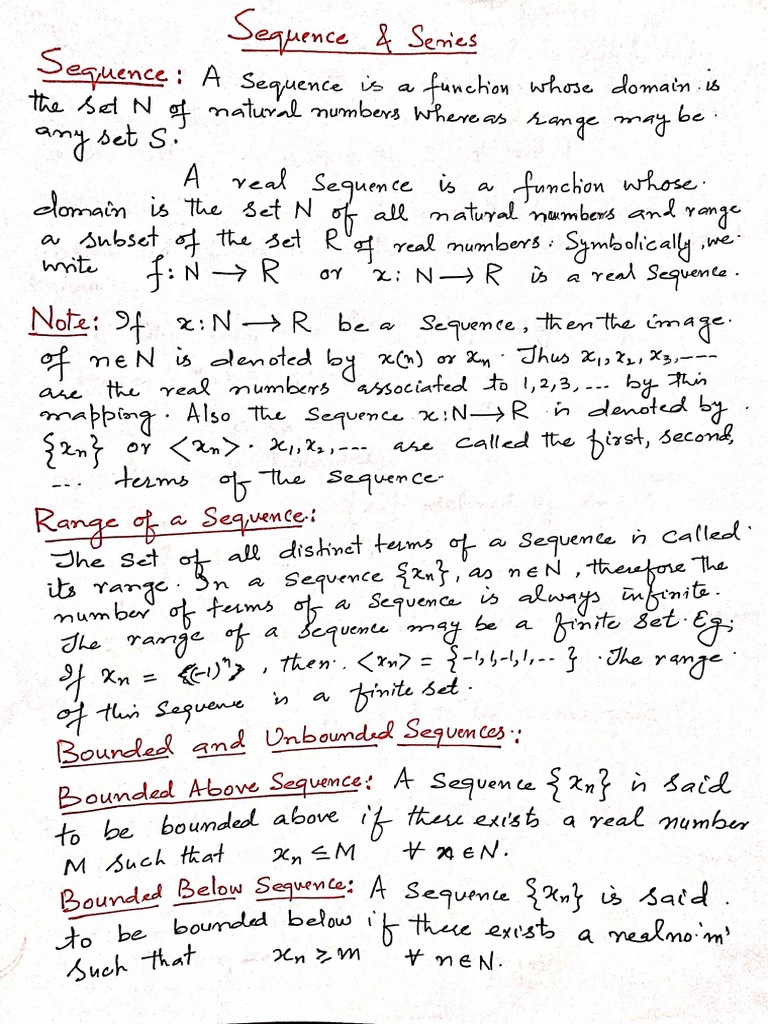 Sequence & Series
Sequence: A Sequence is a function whose domain is
the set N of natural numbers whereas range may be
any set S.
A real Sequence is a function whose
domain is the set N of all natural numbers and range
a subset of the set R of real numbers. Symbolically, we
write f: N → R or x: N → R is a real Sequence.
Note: If x: N → R be a Sequence, then the image
of n ∈ N is denoted by x(n) or xₙ. Thus x₁, x₂, x₃, ----
are the real numbers associated to 1, 2, 3, ... by this
mapping. Also the sequence x: N → R is denoted by
{xₙ} or <xₙ>. x₁, x₂, --- are called the first, second,
... terms of the Sequence.
Range of a Sequence:
The set of all distinct terms of a sequence is called
its range. In a sequence {xₙ}, as n ∈ N, therefore the
number of terms of a sequence is always infinite.
The range of a sequence may be a finite set. Eg;
If xₙ = {(-1)ⁿ}, then <xₙ> = {-1, 1, -1, 1, ...}. The range
of this sequence is a finite set.
Bounded and Unbounded Sequences:
Bounded Above Sequence: A Sequence {xₙ} is said
to be bounded above if there exists a real number
M such that xₙ ≤ M ∀ n ∈ N.
Bounded Below Sequence: A Sequence {xₙ} is said
to be bounded below if there exists a real no. 'm'
such that xₙ ≥ m ∀ n ∈ N.